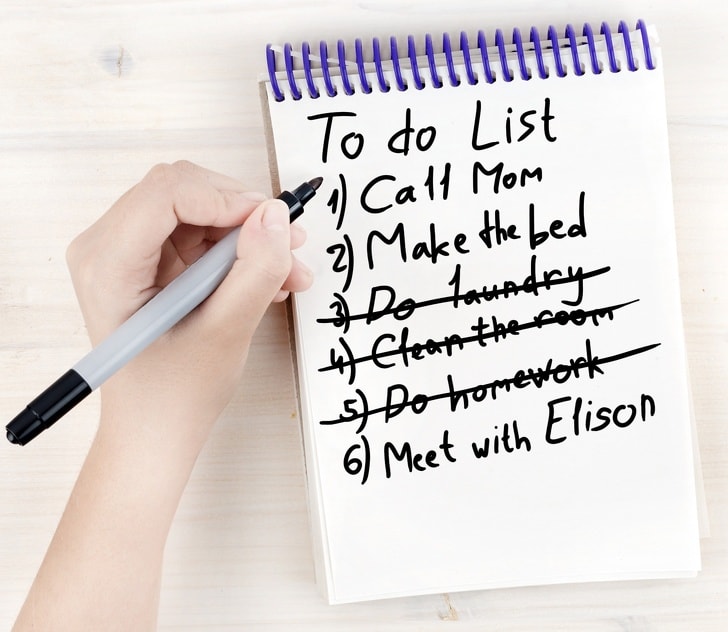 To do List
1) Call Mom
2) Make the bed
3) Do laundry
4) Clean the room
5) Do homework
6) Meet with Elison